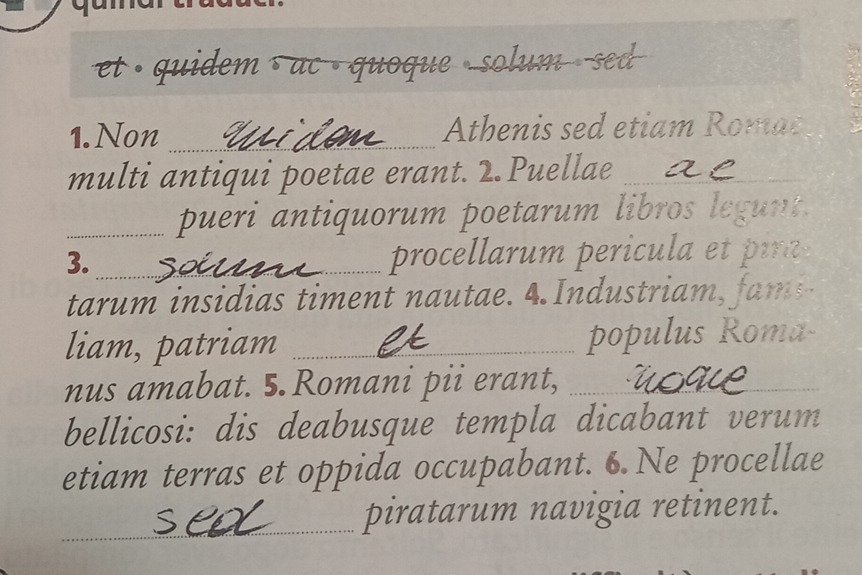 quindi traduci.
et • quidem • ac • quoque • solum • sed
1. Non quidem Athenis sed etiam Romae
multi antiqui poetae erant. 2. Puellae ac
pueri antiquorum poetarum libros legunt.
3. solum procellarum pericula et pira-
tarum insidias timent nautae. 4. Industriam, fami-
liam, patriam et populus Roma-
nus amabat. 5. Romani pii erant, quoque
bellicosi: dis deabusque templa dicabant verum
etiam terras et oppida occupabant. 6. Ne procellae
sed piratarum navigia retinent.